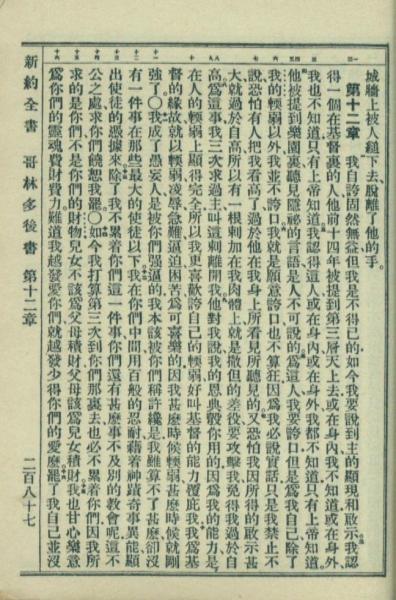 城牆上被人縋下去、脫離了他的手。
第十二章 我自誇固然無益但我是不得已的如今我要說到主的顯現和啟示我認
得一個在基督裏的人他前十四年被提到第三層天上去或在身內我不知道或在身外
我也不知道只有上帝知道我認得這人或在身內或在身外我都不知道只有上帝知道
他被提到樂園裏聽見隱祕的言語是人不可說的爲這人我要誇口但是爲我自己除了
我的輭弱以外我並不誇口我就是願意誇口也不算狂因爲我必說實話只是我禁止不
說恐怕有人把我看高了過於他在我身上所看見所聽見的又恐怕我因所得的啟示甚
大就過於自高所以有一根刺加在我肉體上就是撒但的差役要攻擊我免得我過於自
高爲這事我三次求過主叫這刺離開我他對我說我的恩典彀你用的因爲我的能力是
在人的輭弱上顯得完全所以我更喜歡誇自己的輭弱好叫基督的能力覆庇我我爲基
督的緣故就以輭弱凌辱急難逼迫困苦爲可喜樂的因我甚麽時候輭弱甚麽時候就剛
強了〇我成了愚妄人是被你們强逼的我本該被你們稱許纔是我雖算不了甚麽卻沒
有一件事在那些最大的使徒以下我在你們中間用百般的忍耐藉着神蹟奇事異能顯
出使徒的憑據來除了我不累着你們這一件事你們還有甚麽事不及別的教會呢這不
公之處求你們饒恕我罷〇如今我打算第三次到你們那裏去也必不累着你們因我所
求的是你們不是你們的財物兒女不該爲父母積財父母該爲兒女積財我也甘心樂意
爲你們的靈魂費財費力難道我越發愛你們就越發少得你們的愛麽罷了我自己並沒
新約全書 哥林多後書 第十二章 二百八十七